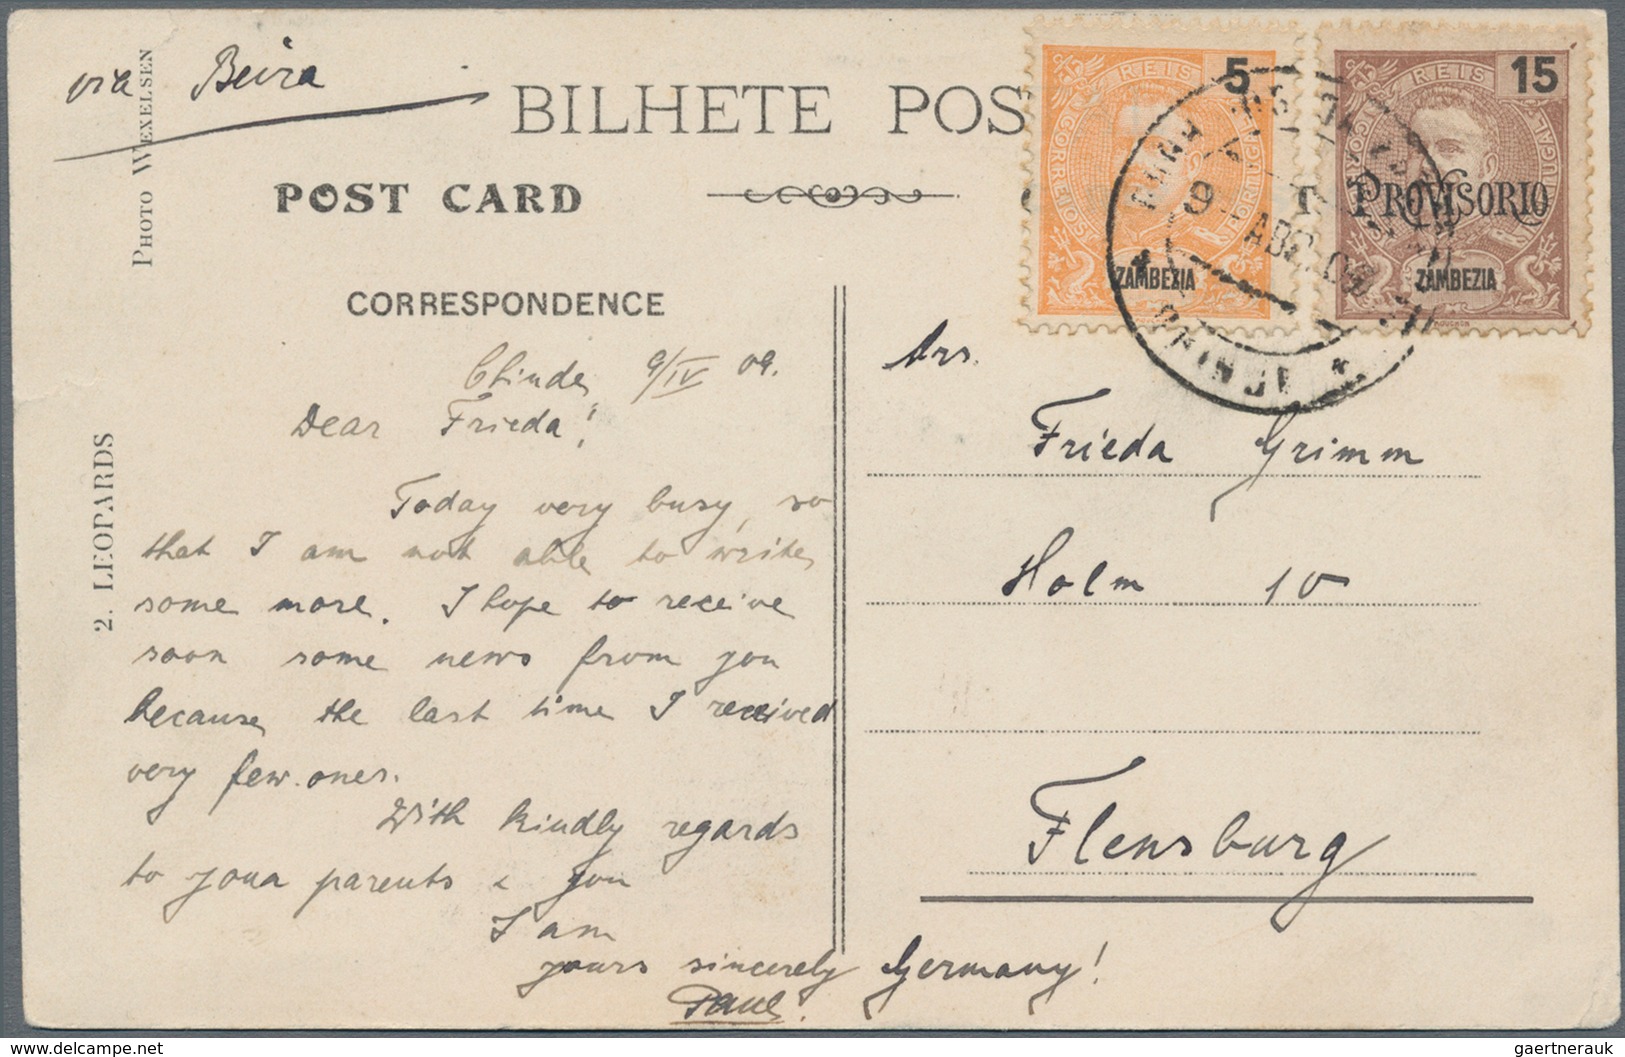 via Beira
PHOTO WEXELSEN
BILHETE POS
POST CARD
T
CORRESPONDENCE
2. LEOPARDS
REIS
5
CORREIOS
PORTUGAL
ZAMBEZIA
REIS
15
PROVISORIO
ZAMBEZIA
9 ABR 09
Chinde, 9/IV 09.
Dear Frieda!
Today very busy, so
that I am not able to write
some more. I hope to receive
soon some news from you
because the last time I received
very few ones.
With kindly regards
to your parents & you
I am
yours sincerely
Paul.
Mrs.
Frieda Grimm
Holm 10
Flensburg
Germany!
gaertnerauk